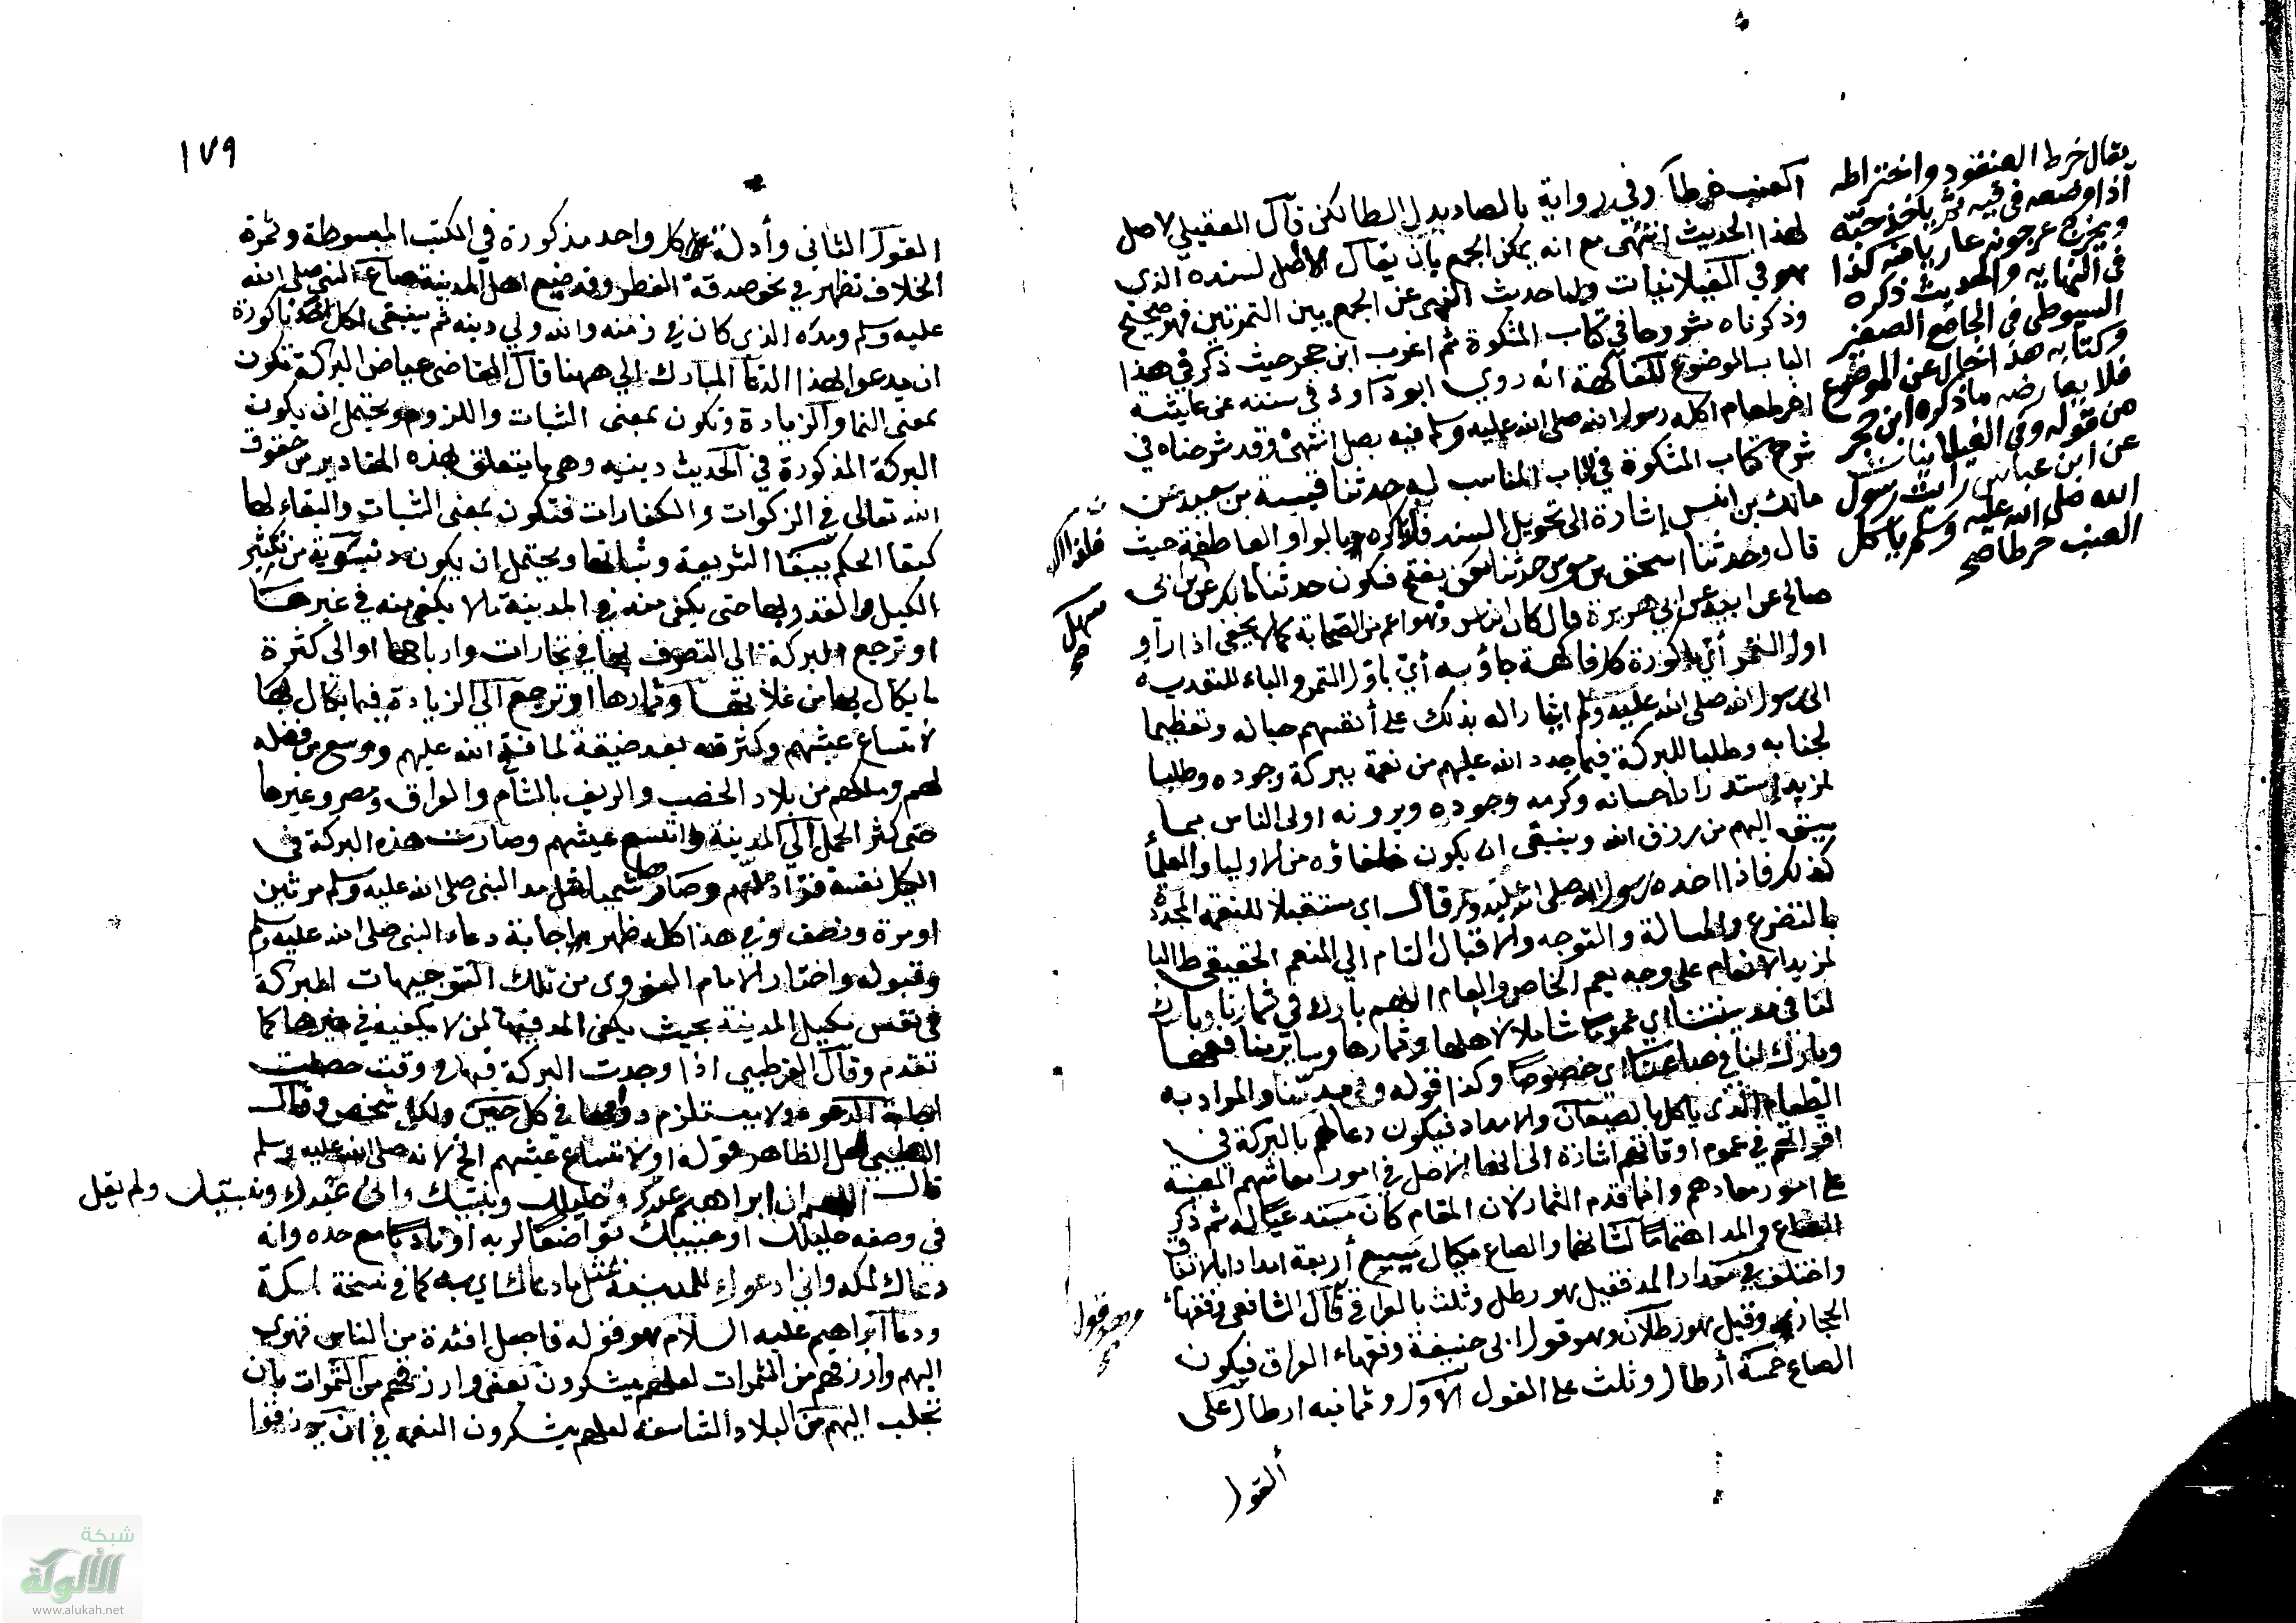 العنب خرطا وفي رواية بالصاد بدل الطا لكن قال العقيلي لا اصل
لهذا الحديث انتهى مع انه يمكن الجمع بان يقال الاصل لسنده الذي
هو في الغيلانيات واما حديث النهي عن الجمع بين التمرتين فهو صحيح
وذكرناه مشروحا في كتاب المشكوة ثم اغرب ابن حجر حيث ذكر في هذا
الباب الموضوع للفاكهة انه روى ابو داود في سننه عن عايشة
اخر طعام اكله رسول الله صلى الله عليه وسلم فيه بصل انتهى وقد شرحناه في
شرح كتاب المشكوة في الباب المناسب ليه حدثنا قتيبة بن سعيد عن
مالك بن انس إشارة الى تحويل السند فلذا ذكره بالواو العاطفة حيث
قال وحدثنا اسحق بن موسى حدثنا معن بفتح فسكون حدثنا مالك عن بن ابى
صالح عن ابيه عن ابي هريرة قال كان الناس وهو اعم من الصحابة كما لا يخفى اذا رأو
اول الثمر أي باكورة كل فاكهة جاؤ به أي باول الثمر والباء للتعدية
الى رسول الله صلى الله عليه وسلم ايثارا له بذلك على أنفسهم حبا له وتعظيما
لجنابه وطلبا للبركة فيما جدد الله عليهم من نعمة ببركة وجوده وطلبا
لمزيد استدرار احسانه وكرمه وجوده ويرونه اولى الناس بما
سبق اليهم من رزق الله وينبغي ان يكون خلفاؤه من الاوليا والعلمأ
كذلك فاذا اخده رسول الله صلى الله عليه وسلم قال اي مستقبلا للنعمة المجددة
بالتضرع والمسالة والتوجه والاقبال التام الي المنعم الحقيقي طالبا
لمزيد الانعام على وجه يعم الخاص والعام اللهم بارك في ثمارنا وبارك
لنا في مدينتنا اي عموما شاملا لاهلها وثمارها وسائر منافعها
وبارك لنا في صاعنا اي خصوصا وكذا قوله وفي مدنا والمراد به
الطعام الذي ياكل بالصيعان والامداد فيكون دعا لهم بالبركة في
اقواتهم في عموم اوقاتهم اشارة الى انها الاصل في امور معاشهم المعينة
على امور معادهم وانما قدم الثمار لان المقام كان مستدعيا له ثم ذكر
الصاع والمد اهتماما لشانهما والصاع مكيال يسع أربعة امداد بالاتفاق
واختلف في مقدار المد فقيل هو رطل وثلث بالعراقي قال الشافعي وفقهاء
الحجاز وقيل هو رطلان وهو قول ابى حنيفة وفقهاء العراق فيكون
الصاع خمسة أرطال وثلث على القول الاول وثمانيه ارطال على
القول
يقال خرط العنقود واخترطه
اذا وضعه في فيه ثم ياخذ حبّه
ويخرج عرجونه عاريا منه كذا
في النهاية والحديث ذكره
السيوطى في الجامع الصغير
وكتابه هذا اخال عن الموضوع
فلا يعارضه ما ذكره ابن حجر
من قوله وفي الغيلانيات
عن ابن عباس رأيت رسول
الله صلى الله عليه وسلم ياكل
العنب خرطا صح
سهيل
صح
وهو قول
صح
١٧٩
القول الثاني وأدلة كل واحد مذكورة في الكتب المبسوطة وثمرة
الخلاف تظهر في نحو صدقة الفطر وقد ضيع اهل المدينة صاع النبي صلى الله
عليه وسلم ومده الذي كان في زمنه والله ولي دينه ثم ينبغي لكل باكورة
ان يدعو بهذا الدعا المبارك الي ههنا قال القاضي عياض البركة تكون
بمعنى النما والزيادة وتكون بمعنى الثبات واللزوم ويحتمل ان يكون
البركة المذكورة في الحديث دينيه وهي ما يتعلق بهذه المقادير من حقوق
الله تعالى في الزكوات والكفارات فتكون بمعنى الثبات والبقاء لها
كبقا الحكم ببقا الشريعة وثباتها ويحتمل ان يكون دنيوية من تكثير
الكيل والقدر بها حتى يكفى منه في المدينة ما لا يكفى منه في غيرها
او ترجع البركة الى التصرف بها في تجارات وارباحها او الى كثرة
ما يكال بها من غلاتها وثمارها او ترجع الى الزيادة فيما يكال بها
لاتساع عيشهم وكثرته بعد ضيقه لما فتح الله عليهم ووسع من فضله
لهم وملكهم من بلاد الخصب والريف بالشام والعراق ومصر وغيرها
حتى كثر الحمل الى المدينة واتسع عيشهم وصارت هذه البركة في
الكيل نفسه فزاد مدهم وصار هاشميا مثل مد النبى صلى الله عليه وسلم مرتين
او مرة ونصف وفي هذا كله ظهر اجابة دعاء النبى صلى الله عليه وسلم
وقبوله واختار الامام النووى من تلك التوجيهات البركة
في نفس مكيل المدينة بحيث يكفى المد فيها لمن لا يكفيه في غيرها كما
تقدم وقال القرطبي اذا وجدت البركة فيها في وقت حصلت
اجابة الدعوة ولا يستلزم دوامها في كل حين ولكل شخص وقال
الطيبي لعل الظاهر قوله او لاتساع عيشهم الخ لانه صلى الله عليه وسلم
قال اللهم ان ابراهيم عبدك وخليلك ونبيك وانى عبدك ونبيك ولم يقل
في وصفه خليلك او حبيبك تواضعا لربه او تادبا مع جده وانه
دعاك لمكة وانى ادعوك للمدينة بمثل ما دعاك اي به كما في نسخة لمكة
ودعا ابراهيم عليه السلام هو قوله فاجعل افئدة من الناس تهوي
اليهم وارزقهم من الثمرات لعلهم يشكرون يعني وارزقهم من الثمرات بان
تجلب اليهم من البلاد الشاسعة لعلهم يشكرون النعمة في ان يرزقوا
شبكة
الألوكة
www.alukah.net